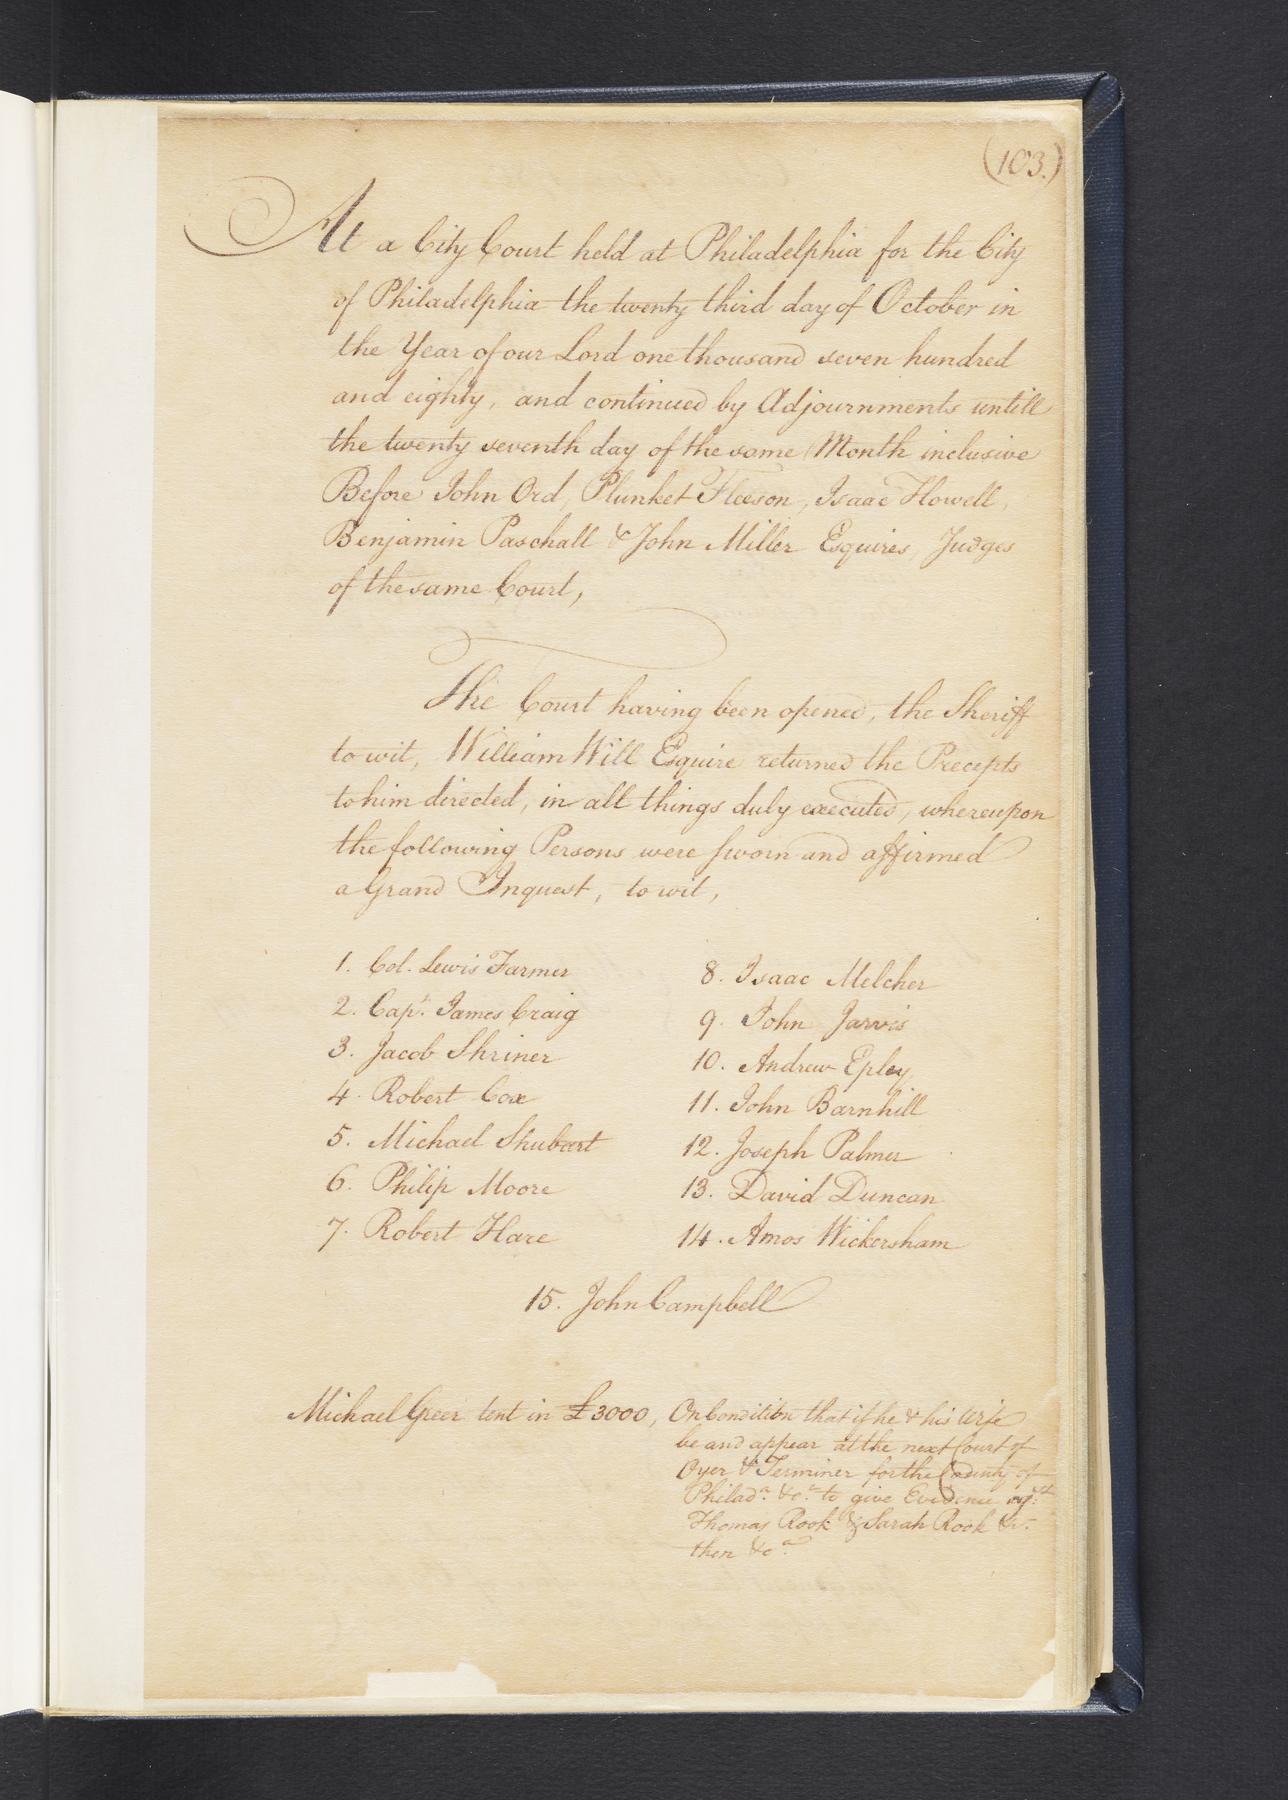 (103.)
At a City Court held at Philadelphia for the City
of Philadelphia the twenty third day of October in
the Year of our Lord one thousand seven hundred
and eighty, and continued by Adjournments untill
the twenty seventh day of the same Month inclusive
Before John Ord, Plunket Fleeson, Isaac Howell,
Benjamin Paschall & John Miller Esquires, Judges
of the same Court,
The Court having been opened, the Sheriff
to wit, William Will Esquire returned the Precepts
to him directed, in all things duly executed, whereupon
the following Persons were sworn and affirmed
a Grand Inquest, to wit,
1. Col. Lewis Farmer
2. Capt. James Craig
3. Jacob Shriner
4. Robert Cox
5. Michael Shubart
6. Philip Moore
7. Robert Hare
8. Isaac Melcher
9. John Jarvis
10. Andrew Epley
11. John Barnhill
12. Joseph Palmer
13. David Duncan
14. Amos Wickersham
15. John Campbell
Michael Greer tent in £3000, On Condition that if he & his Wife
be and appear at the next Court of
Oyer & Terminer for the County of
Philada. &ca. to give Evidence agst.
Thomas Rook & Sarah Rook &c.
then &ca.